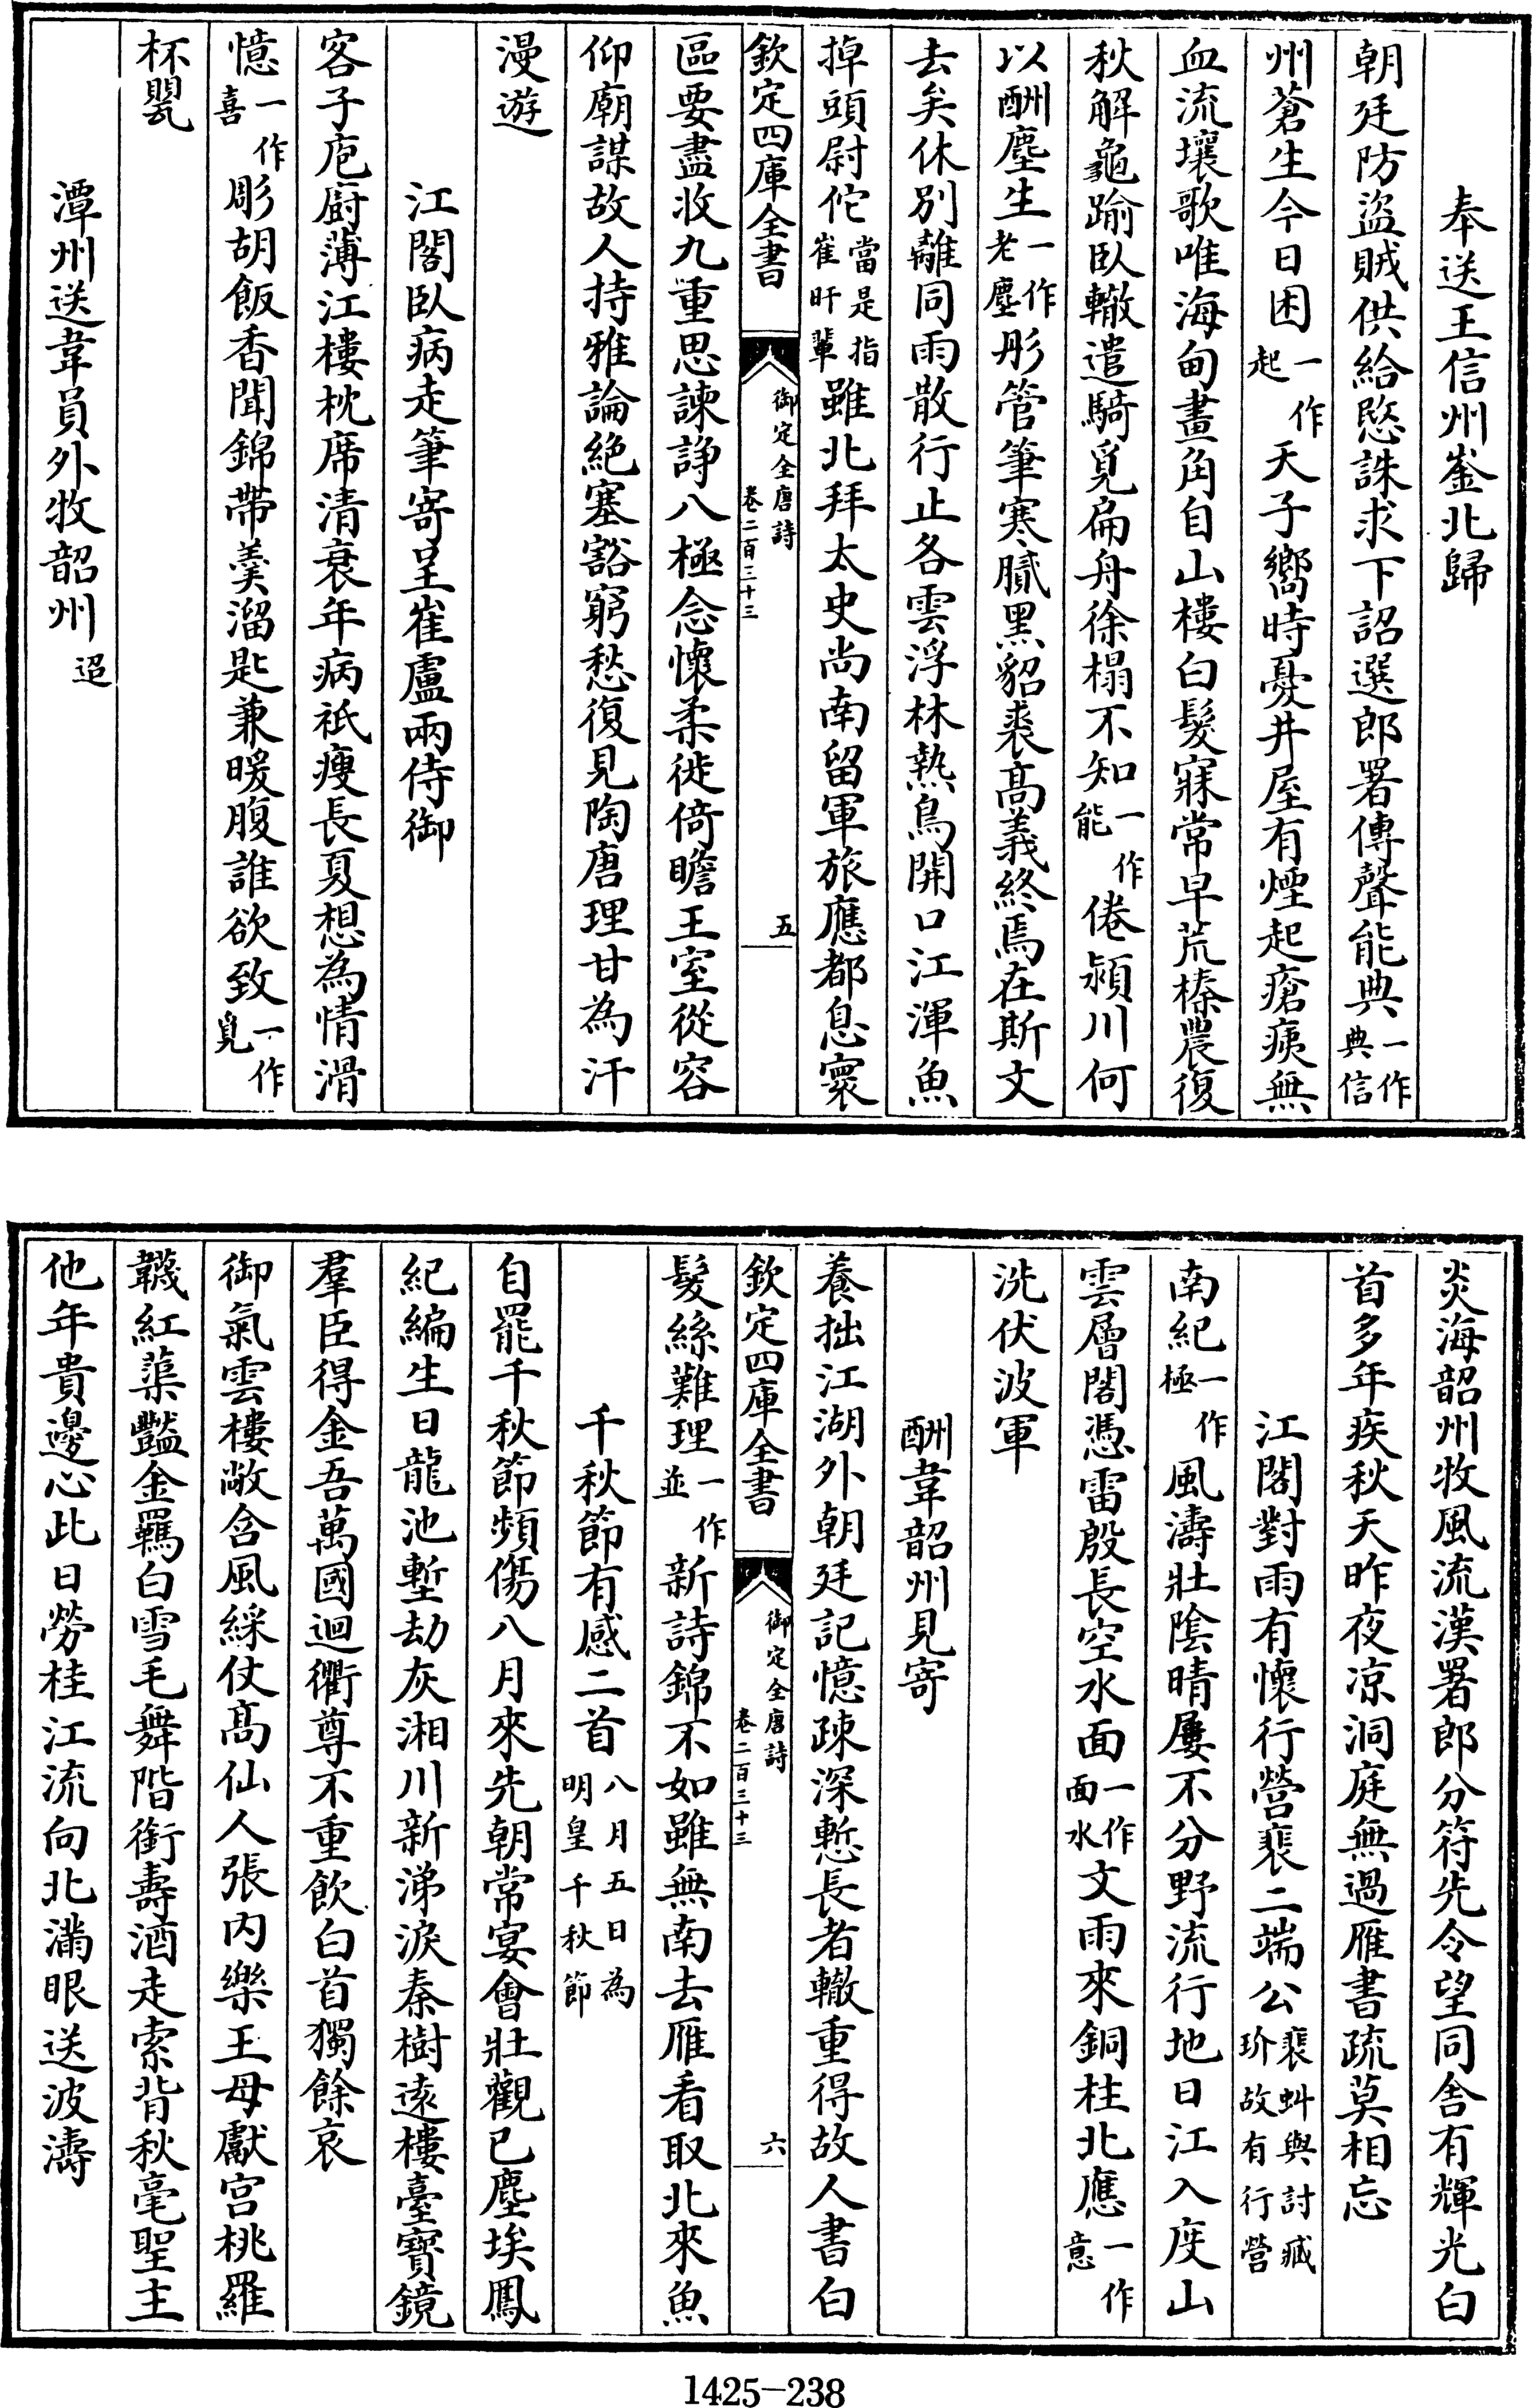 奉送王信州崟北歸
朝廷防盜賊供給愍誅求下詔選郎署傳聲能典一作典信
州蒼生今日困一作起天子嚮時憂井屋有煙起瘡痍無
血流壤歌唯海甸畫角自山樓白髮寐常早荒榛農復
秋解龜踰臥轍遣騎覓扁舟徐榻不知一作能倦潁川何
以酬塵生一作老塵彤管筆寒膩黑貂裘高義終焉在斯文
去矣休別離同雨散行止各雲浮林熱鳥開口江渾魚
掉頭尉佗當是指崔旰輩雖北拜太史尚南留軍旅應都息寰
欽定四庫全書
御定全唐詩
卷二百三十三
五
區要盡收九重思諫諍八極念懷柔徙倚瞻王室從容
仰廟謀故人持雅論絕塞豁窮愁復見陶唐理甘為汗
漫遊
江閣臥病走筆寄呈崔盧兩侍御
客子庖廚薄江樓枕席清衰年病祇瘦長夏想為情滑
憶一作喜彫胡飯香聞錦帶羹溜匙兼暖腹誰欲致一作覓
杯甖
潭州送韋員外牧韶州迢
炎海韶州牧風流漢署郎分符先令望同舍有輝光白
首多年疾秋天昨夜凉洞庭無過雁書疏莫相忘
江閣對雨有懷行營裴二端公裴虯與討臧玠故有行營
南紀一作極風濤壯陰晴屢不分野流行地日江入度山
雲層閣憑雷殷長空水面一作面水文雨來銅柱北應一作意
洗伏波軍
酬韋韶州見寄
養拙江湖外朝廷記憶疎深慙長者轍重得故人書白
欽定四庫全書
御定全唐詩
卷二百三十三
六
髮絲難理一作並新詩錦不如雖無南去雁看取北來魚
千秋節有感二首八月五日為明皇千秋節
自罷千秋節頻傷八月來先朝常宴會壯觀已塵埃鳳
紀編生日龍池塹劫灰湘川新涕淚秦樹遠樓臺寶鏡
羣臣得金吾萬國迴衢尊不重飲白首獨餘哀
御氣雲樓敞含風綵仗高仙人張內樂王母獻宮桃羅
韈紅蕖豔金羈白雪毛舞階銜壽酒走索背秋毫聖主
他年貴邊心此日勞桂江流向北滿眼送波濤
1425-238